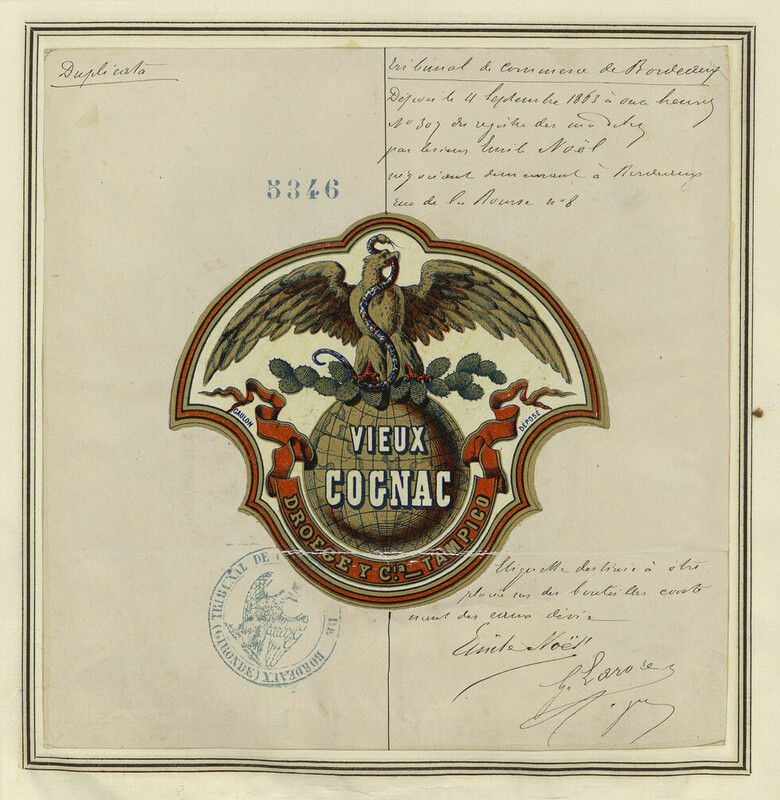 Duplicata
Tribunal de Commerce de Bordeaux
Déposé le 4 Septembre 1863 à onze heures
N° 307 du registre des
par le sieur Emile Noël
négociant demeurant à Bordeaux
rue de la Bourse n° 8
5346
GAULON
DÉPOSÉ
VIEUX
COGNAC
DROEGE Y C.ia TAMPICO
TRIBUNAL DE
DE BORDEAUX
(GIRONDE)
Etiquette destinée à être
placée sur des bouteilles conte
nant des eaux de vie
Emile Noël
G. Larose